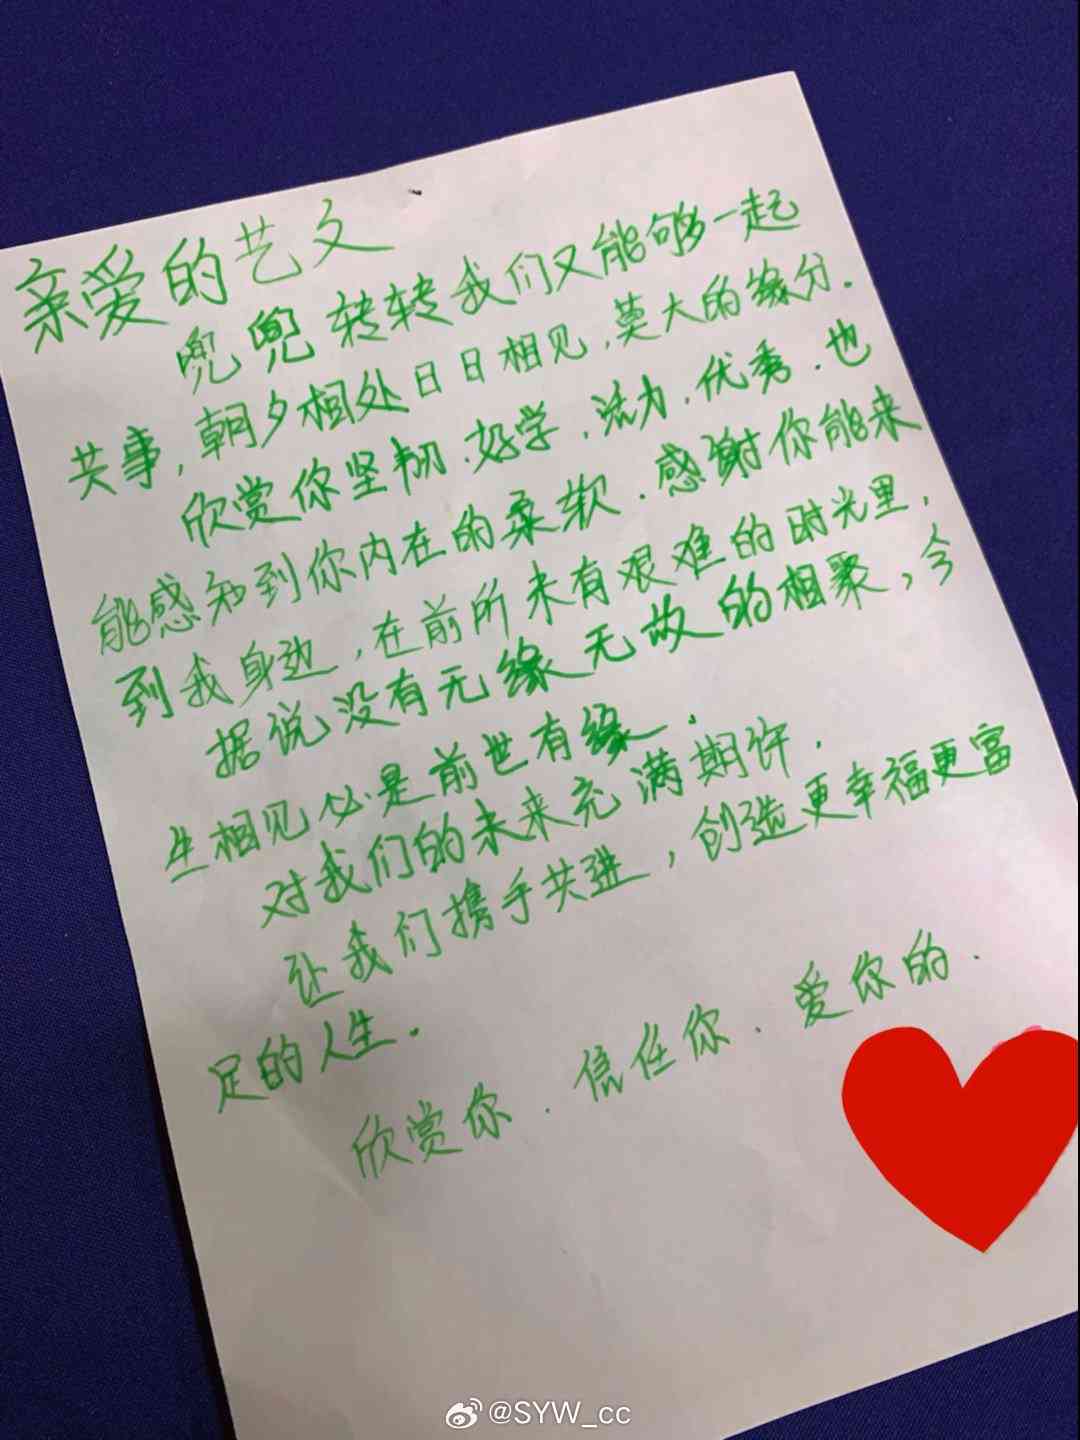 亲爱的艺文
兜兜转转我们又能够一起
共事,朝夕相处日日相见,莫大的缘分.
欣赏你坚韧.好学.活力.优秀.也
能感知到你内在的柔软.感谢你能来
到我身边,在前所未有艰难的时光里.
据说没有无缘无故的相聚,今
生相见必是前世有缘.
对我们的未来充满期许.
让我们携手共进,创造更幸福更富
足的人生.
欣赏你.信任你.爱你的.
@SYW_cc